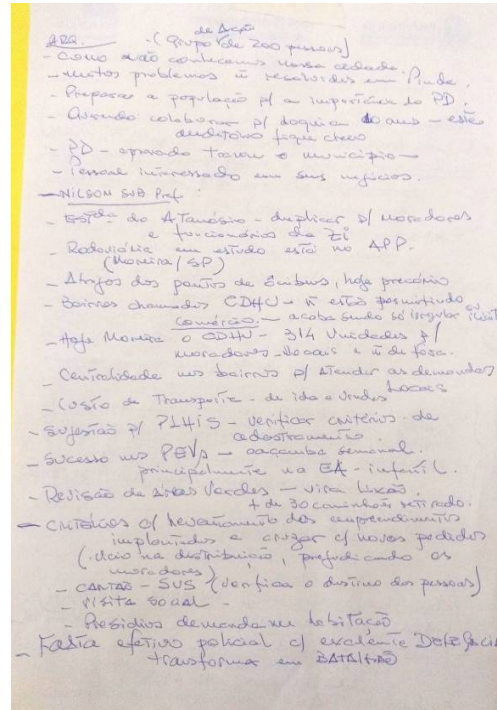 de Ação
ARQ. - (Grupo de 200 pessoas)
- Como não conhecemos nossa cidade
- muitos problemas ñ resolvidos em Pinda.
- Preparar a população p/ a importância do PD.
- Querendo colaborar p/ daqui a 10 anos - este
auditório fique cheio
- PD - aprovado travou o município -
- Pessoal interessado em seus negócios.
- NILSON SUB Pref :
- Estrada do Atanásio - duplicar p/ moradores
e funcionários da ZI
- Rodoviária em estudo está no APP.
(Moreira / SP)
- Abrigos dos pontos de ônibus, hoje precário
- Bairros chamados CDHU - ñ estão permitindo
Comércio. - acaba sendo só irregular
- Hoje Moreira o CDHU - 314 Unidades p/
moradores locais e ñ de fora.
- Centralidade nos bairros p/ atender as demandas
locais
- Custo de Transporte - de ida e vindas
- Sugestão p/ PLHIS - verificar critérios de
cadastramento.
- Sucesso nos PEVs - caçamba semanal.
principalmente na EA - infantil.
- Revisão de áreas Verdes - vira lixão,
+ de 30 caminhões retirado.
- Critérios c/ levantamento dos empreendimentos
implantados e cruzar c/ novos pedidos
na distribuição, prejudicando os
moradores)
- CARTÃO - SUS (verifica o destino das pessoas)
- VISITA SOCIAL -
- Presídios demanda na habitação
- Falta efetivo policial c/ excelente Delegacia
transformar em BATALHÃO